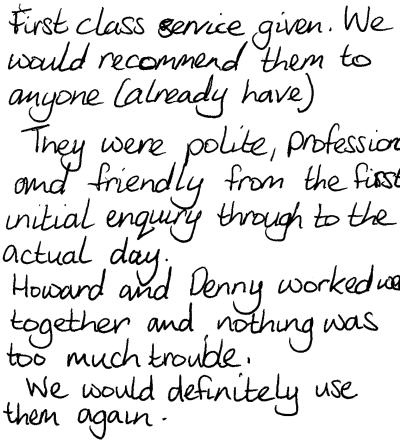 First class service given. We
would recommend them to
anyone (already have)
They were polite, profession
and friendly from the first
initial enquiry through to the
actual day.
Howard and Denny worked we
together and nothing was
too much trouble.
We would definitely use
them again.